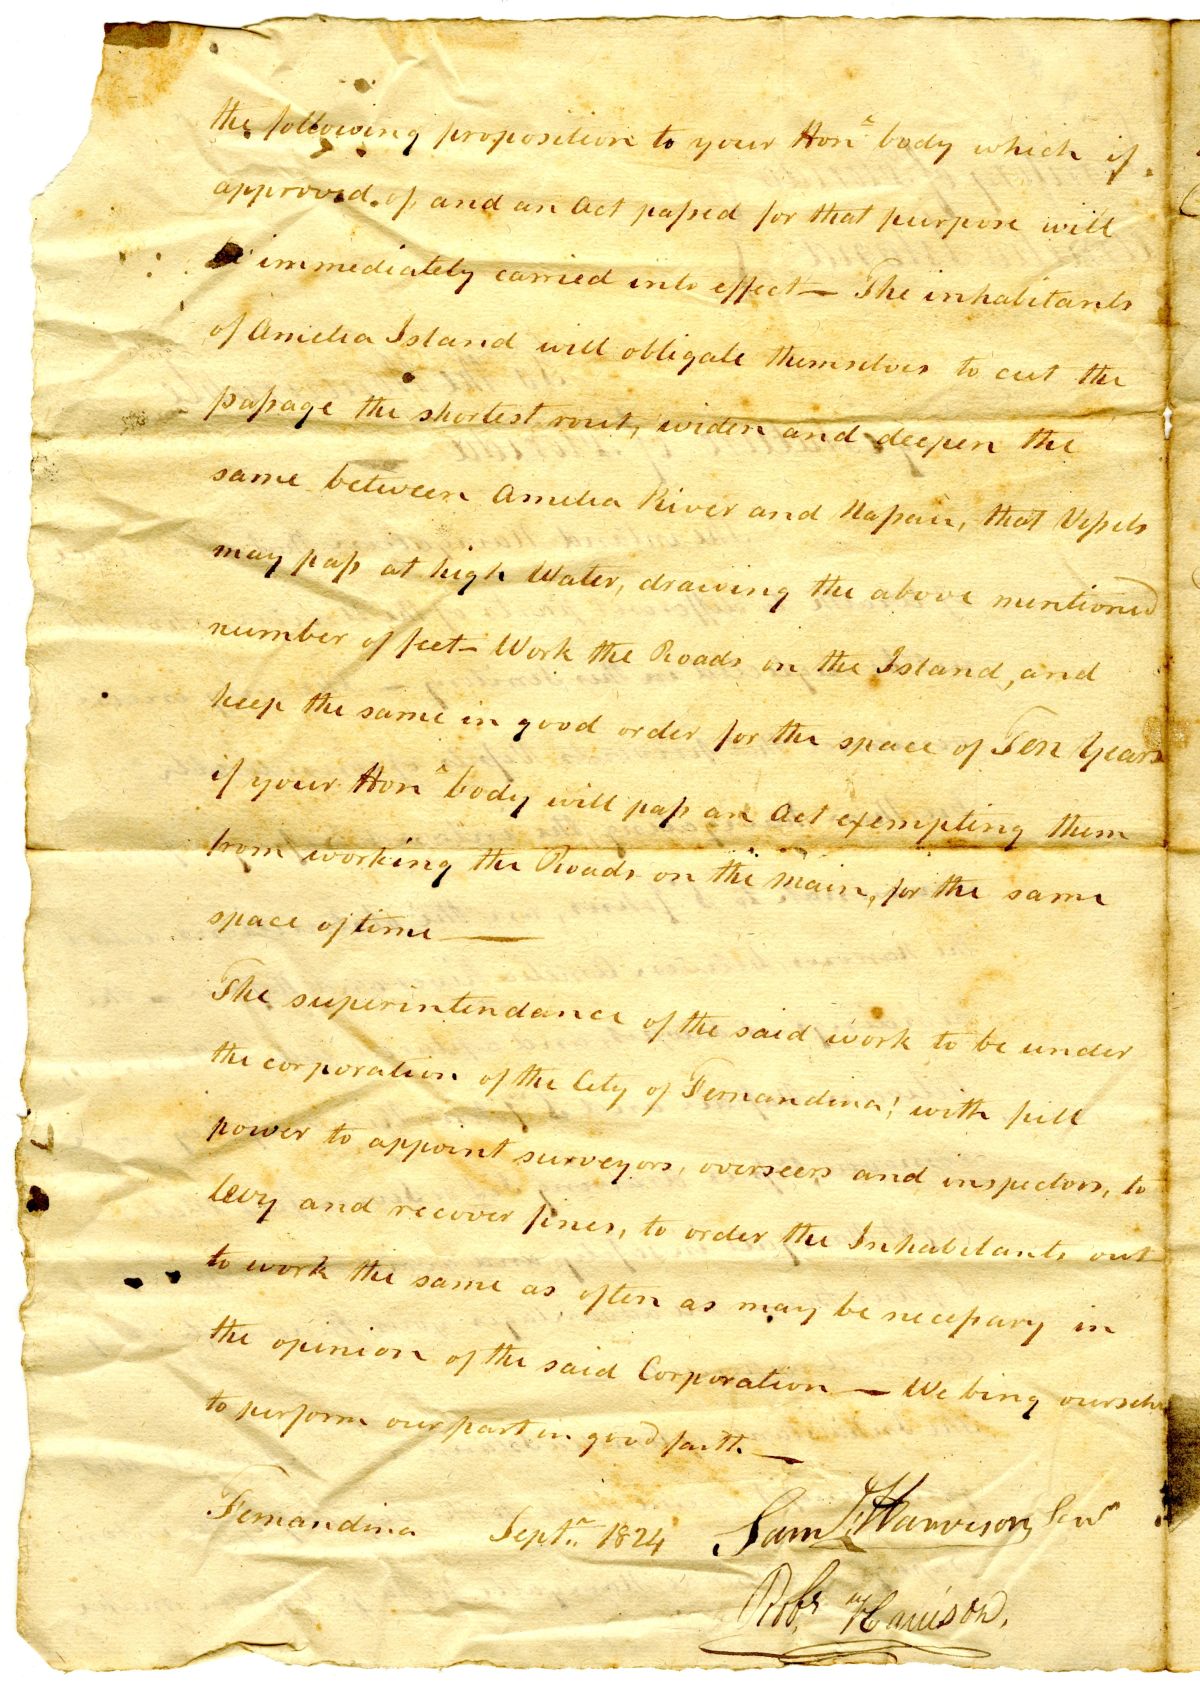 the following proposition to your Honᵉ body which if
approved of, and an Act passed for that purpose will
be immediately carried into effect — The inhabitants
of Amelia Island will obligate themselves to cut the
passage the shortest rout, widen and deepen the
same between Amelia River and Nassau, that Vessels
may pass at high Water, drawing the above mentioned
number of feet — Work the Roads on the Island, and
keep the same in good order for the space of Ten Years
if your Honᵉ body will pass an Act exempting them
from working the Roads on the Main, for the same
space of time —
The superintendance of the said work to be under
the corporation of the City of Fernandina; with full
power to appoint surveyors, overseers and inspectors, to
levy and recover fines, to order the Inhabitants out
to work the same as often as may be necessary in
the opinion of the said Corporation — We bing ourselve
to perform our part in good faith. —
Fernandina Septr. 1824 Saml Harrison Senr
Robt Harrison.